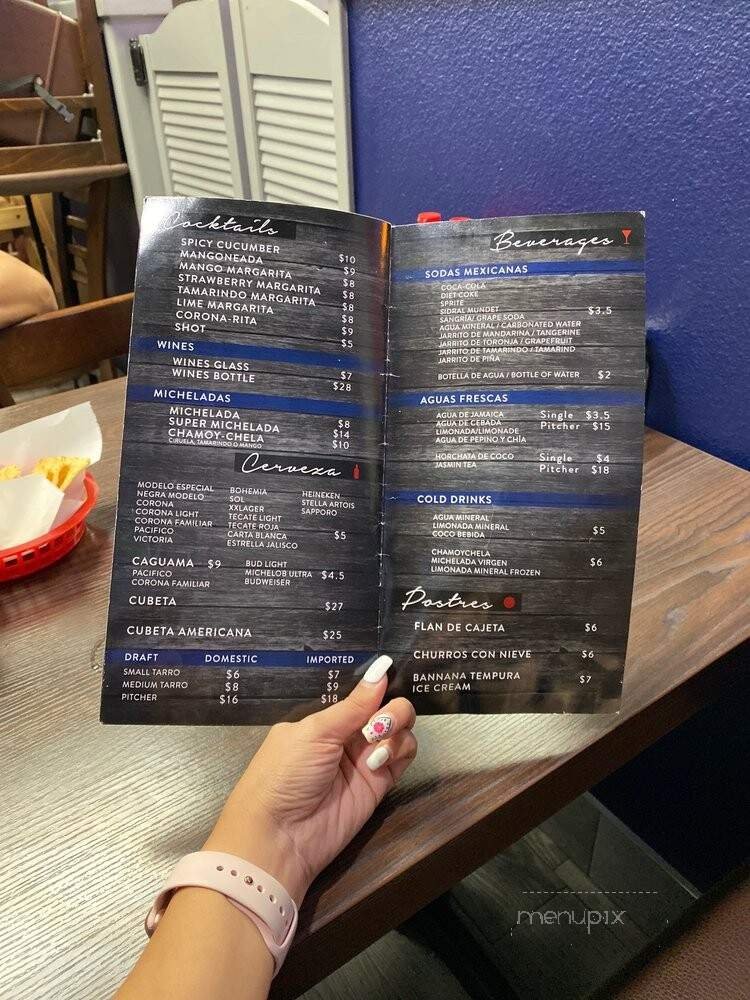 Cocktails
SPICY CUCUMBER $10
MANGONEADA $9
MANGO MARGARITA $8
STRAWBERRY MARGARITA $8
TAMARINDO MARGARITA $8
LIME MARGARITA $8
CORONA-RITA $9
SHOT $5
WINES
WINES GLASS $7
WINES BOTTLE $28
MICHELADAS
MICHELADA $8
SUPER MICHELADA $14
CHAMOY-CHELA $10
CIRUELA, TAMARINDO O MANGO
Cerveza
MODELO ESPECIAL BOHEMIA HEINEKEN
NEGRA MODELO SOL STELLA ARTOIS
CORONA XXLAGER SAPPORO
CORONA LIGHT TECATE LIGHT
CORONA FAMILIAR TECATE ROJA
PACIFICO CARTA BLANCA $5
VICTORIA ESTRELLA JALISCO
CAGUAMA $9 BUD LIGHT
PACIFICO MICHELOB ULTRA $4.5
CORONA FAMILIAR BUDWEISER
CUBETA $27
CUBETA AMERICANA $25
DRAFT DOMESTIC IMPORTED
SMALL TARRO $6 $7
MEDIUM TARRO $8 $9
PITCHER $16 $18
Beverages
SODAS MEXICANAS
COCA-COLA
DIET COKE
SPRITE
SIDRAL MUNDET $3.5
SANGRIA/ GRAPE SODA
AGUA MINERAL / CARBONATED WATER
JARRITO DE MANDARINA / TANGERINE
JARRITO DE TORONJA / GRAPEFRUIT
JARRITO DE TAMARINDO / TAMARIND
JARRITO DE PIÑA
BOTELLA DE AGUA / BOTTLE OF WATER $2
AGUAS FRESCAS
AGUA DE JAMAICA Single $3.5
AGUA DE CEBADA Pitcher $15
LIMONADA/LIMONADE
AGUA DE PEPINO Y CHÍA
HORCHATA DE COCO Single $4
JASMIN TEA Pitcher $18
COLD DRINKS
AGUA MINERAL
LIMONADA MINERAL $5
COCO BEBIDA
CHAMOYCHELA
MICHELADA VIRGEN $6
LIMONADA MINERAL FROZEN
Postres
FLAN DE CAJETA $6
CHURROS CON NIEVE $6
BANNANA TEMPURA $7
ICE CREAM
menupix